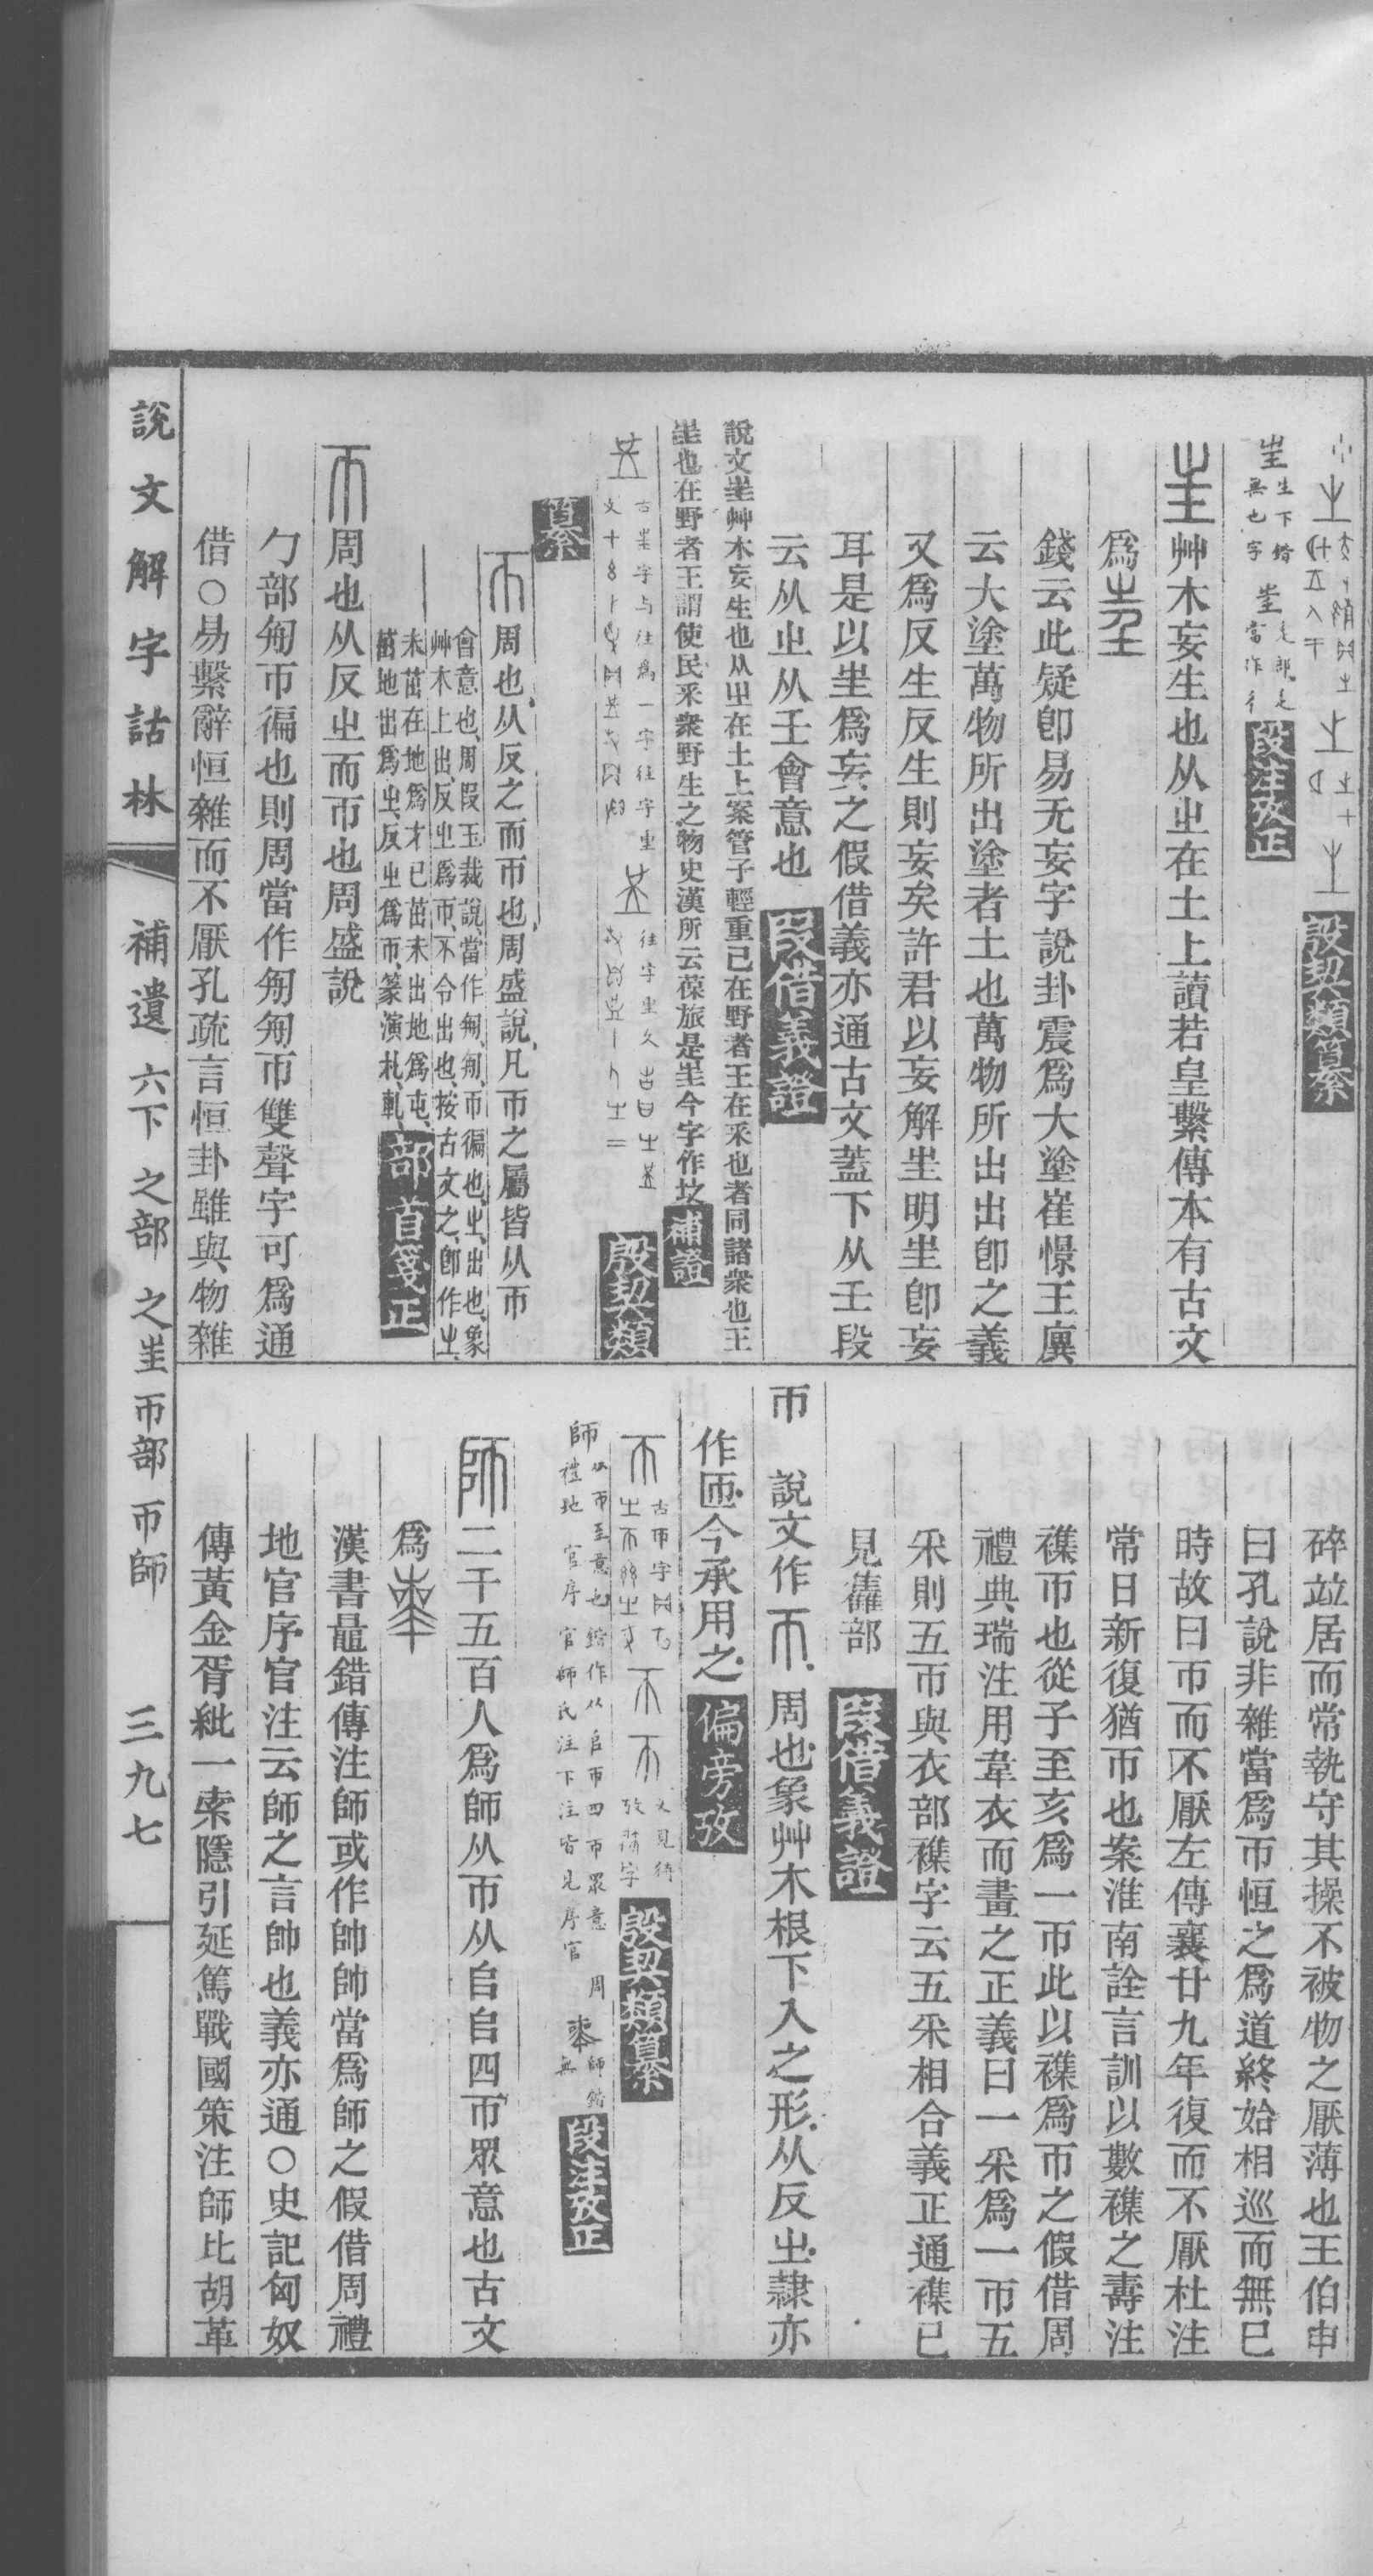 殷契類篹
𡉚
生下鍇無也字
段注攷正
艸木妄生也从㞢在土上讀若皇繫傳本有古文
爲
錢云此疑卽易无妄字說卦震爲大塗崔憬王廙
云大塗萬物所出塗者土也萬物所出出卽之義
又爲反生反生則妄矣許君以妄解㞷明㞷卽妄
耳是以㞷爲妄之假借義亦通古文蓋下从壬段
云从㞢从壬會意也 段借義證
說文㞷艸木妄生也从㞢在土上案管子輕重己在野者王在采也者同諸衆也王
㞷也在野者王謂使民釆衆野生之物史漢所云葆旅是㞷今字作
補證
古㞷字与往爲一字
殷契類
篹
周也从反之而帀也周盛說凡帀之屬皆从帀
會意也周段玉裁說當作匊匊帀徧也㞢出也象
艸木上出反㞢爲帀不令出也按古文之卽作㞢
未茁在地爲才已茁未出地爲屯
茁地出爲㞢反㞢爲帀篆演札軋 部首箋正
周也从反㞢而帀也周盛說
勹部匊帀徧也則周當作匊匊帀雙聲字可爲通
借○易繫辭恒雜而不厭孔疏言恒卦雖與物雜
碎竝居而常執守其操不被物之厭薄也王伯申
曰孔說非雜當爲帀恒之爲道終始相巡而無已
時故曰帀而不厭左傳襄廿九年復而不厭杜注
常日新復猶帀也案淮南詮言訓以數襍之壽注
襍帀也從子至亥爲一帀此以襍爲帀之假借周
禮典瑞注用韋衣而畫之正義曰一采爲一帀五
采則五帀與衣部襍字云五采相合義正通襍已
見雥部 段借義證
帀 說文作 周也象艸木根下入之形从反㞢隷亦
作匝今承用之 偏旁攷
古帀字
殷契類篹
師 从帀 意也鍇作从𠂤帀四帀眾意 周
禮地官序官師氏注下注皆見序官
段注攷正
二千五百人爲師从帀从𠂤𠂤四帀眾意也古文
爲
漢書鼂錯傳注師或作帥帥當爲師之假借周禮
地官序官注云師之言帥也義亦通○史記匈奴
傳黃金胥紕一索隱引延篤戰國策注師比胡革
說文解字詁林 補遺 六下 之部 之㞷 帀部 帀師 三九七